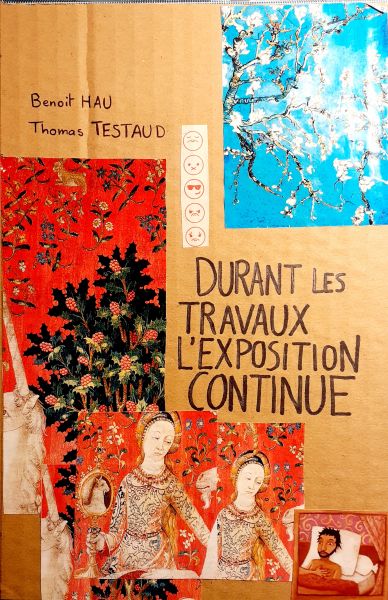 Benoit HAU
Thomas TESTAUD
DURANT LES
TRAVAUX
L'EXPOSITION
CONTINUE